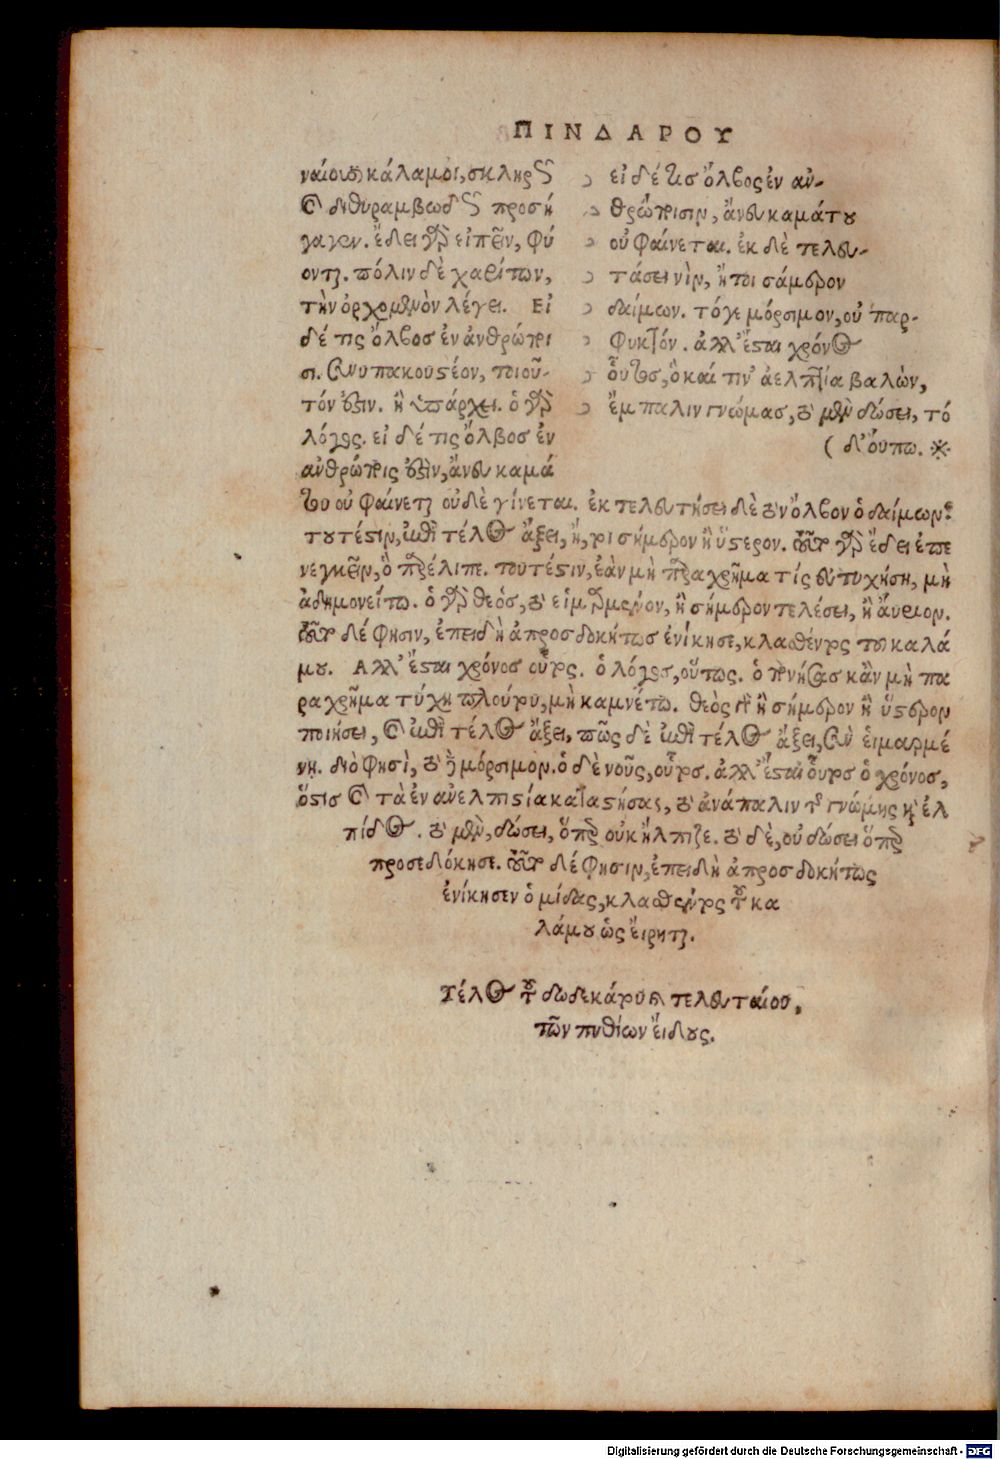 ΠΙΝΔΑΡΟΥ
ναίοιϲ κάλαμοι, σκληρῶς
καὶ διθυραμβωδῶς προσή
γαγεν. ἔδει γὰρ εἰπεῖν, φύ
ονται. πόλιν δὲ χαρίτων,
τὴν ὀρχομενὸν λέγει. Εἰ
δέ τις ὄλβοσ ἐν ἀνθρώποι
σι. συνυπακουστέον, τοιοῦ-
τόν ἐστιν. ἢ ὑπάρχει. ὁ γὰρ
λόγος. εἰ δέ τις ὄλβοσ ἐν
ἀνθρώποις ἐστὶν, ἄνευ καμά
εἰ δέ τισ ὄλβος ἐν ἀν-
θρώποισιν, ἄνευ καμάτου
οὐ φαίνεται. ἐκ δὲ τελευ-
τάσει νὶν, ἤτοι σάμερον
δαίμων. τόγε μόρσιμον, οὐ παρ-
φυκτόν. ἀλλ' ἔσται χρόνος
οὗτοσ, ὃ καί τιν' ἀελπτίᾳ βαλὼν,
ἔμπαλιν γνώμασ, τὸ μὲν δώσει, τό
( δ' οὔπω. ※
του οὐ φαίνεται οὐδὲ γίνεται. ἐκτελευτήσει δὲ τὸν ὄλβον ὁ δαίμων.
τουτέστιν, ἐπὶ τέλος ἄξει, ἤτοι σήμερον ἢ ὕστερον. τοῦτο γὰρ ἔδει ἐπε
νεγκεῖν, ὃ παρέλιπε. τουτέστιν, ἐὰν μὴ παραχρῆμα τίς εὐτυχήσῃ, μὴ
ἀδημονείτω. ὁ γὰρ θεόσ, τὸ εἱμαρμένον, ἢ σήμερον τελέσει, ἢ αὔριον.
τοῦτο δέ φησιν, ἐπειδὴ ἀπροσδοκήτωσ ἐνίκησε, κλασθέντος τοῦ καλά
μου. Ἀλλ' ἔσται χρόνοσ οὗτος. ὁ λόγος, οὕτως. ὁ πονήσασ κἂν μὴ πα
ραχρῆμα τύχῃ πλούτου, μὴ καμνέτω. θεὸς γὰρ ἢ σήμερον ἢ ὕστερον
ποιήσει, καὶ ἐπὶ τέλος ἄξει, πῶς δὲ ἐπὶ τέλος ἄξει, σὺν εἱμαρμέ
νῃ. διὸ φησὶ, τό γε μόρσιμον. ὁ δὲ νοῦς, οὗτος. ἀλλ' ἔσται οὗτος ὁ χρόνοσ,
ὅστισ καὶ τὰ ἐν ἀνελπιστίᾳ καταστήσας, τὸ ἀνάπαλιν τῆς γνώμης καὶ ἐλ
πίδος. τὸ μὲν, δώσει, ὅπερ οὐκ ἤλπιζε. τὸ δὲ, οὐ δώσει ὅπερ
προσεδόκησε. τοῦτο δέ φησιν, ἐπειδὴ ἀπροσδοκήτως
ἐνίκησεν ὁ μίδας, κλασθέντος τοῦ κα
λάμου ὡς εἴρηται.
Τέλος τοῦ δωδεκάτου καὶ τελευταίου,
τῶν πυθίων εἴδους.
Digitalisierung gefördert durch die Deutsche Forschungsgemeinschaft - DFG